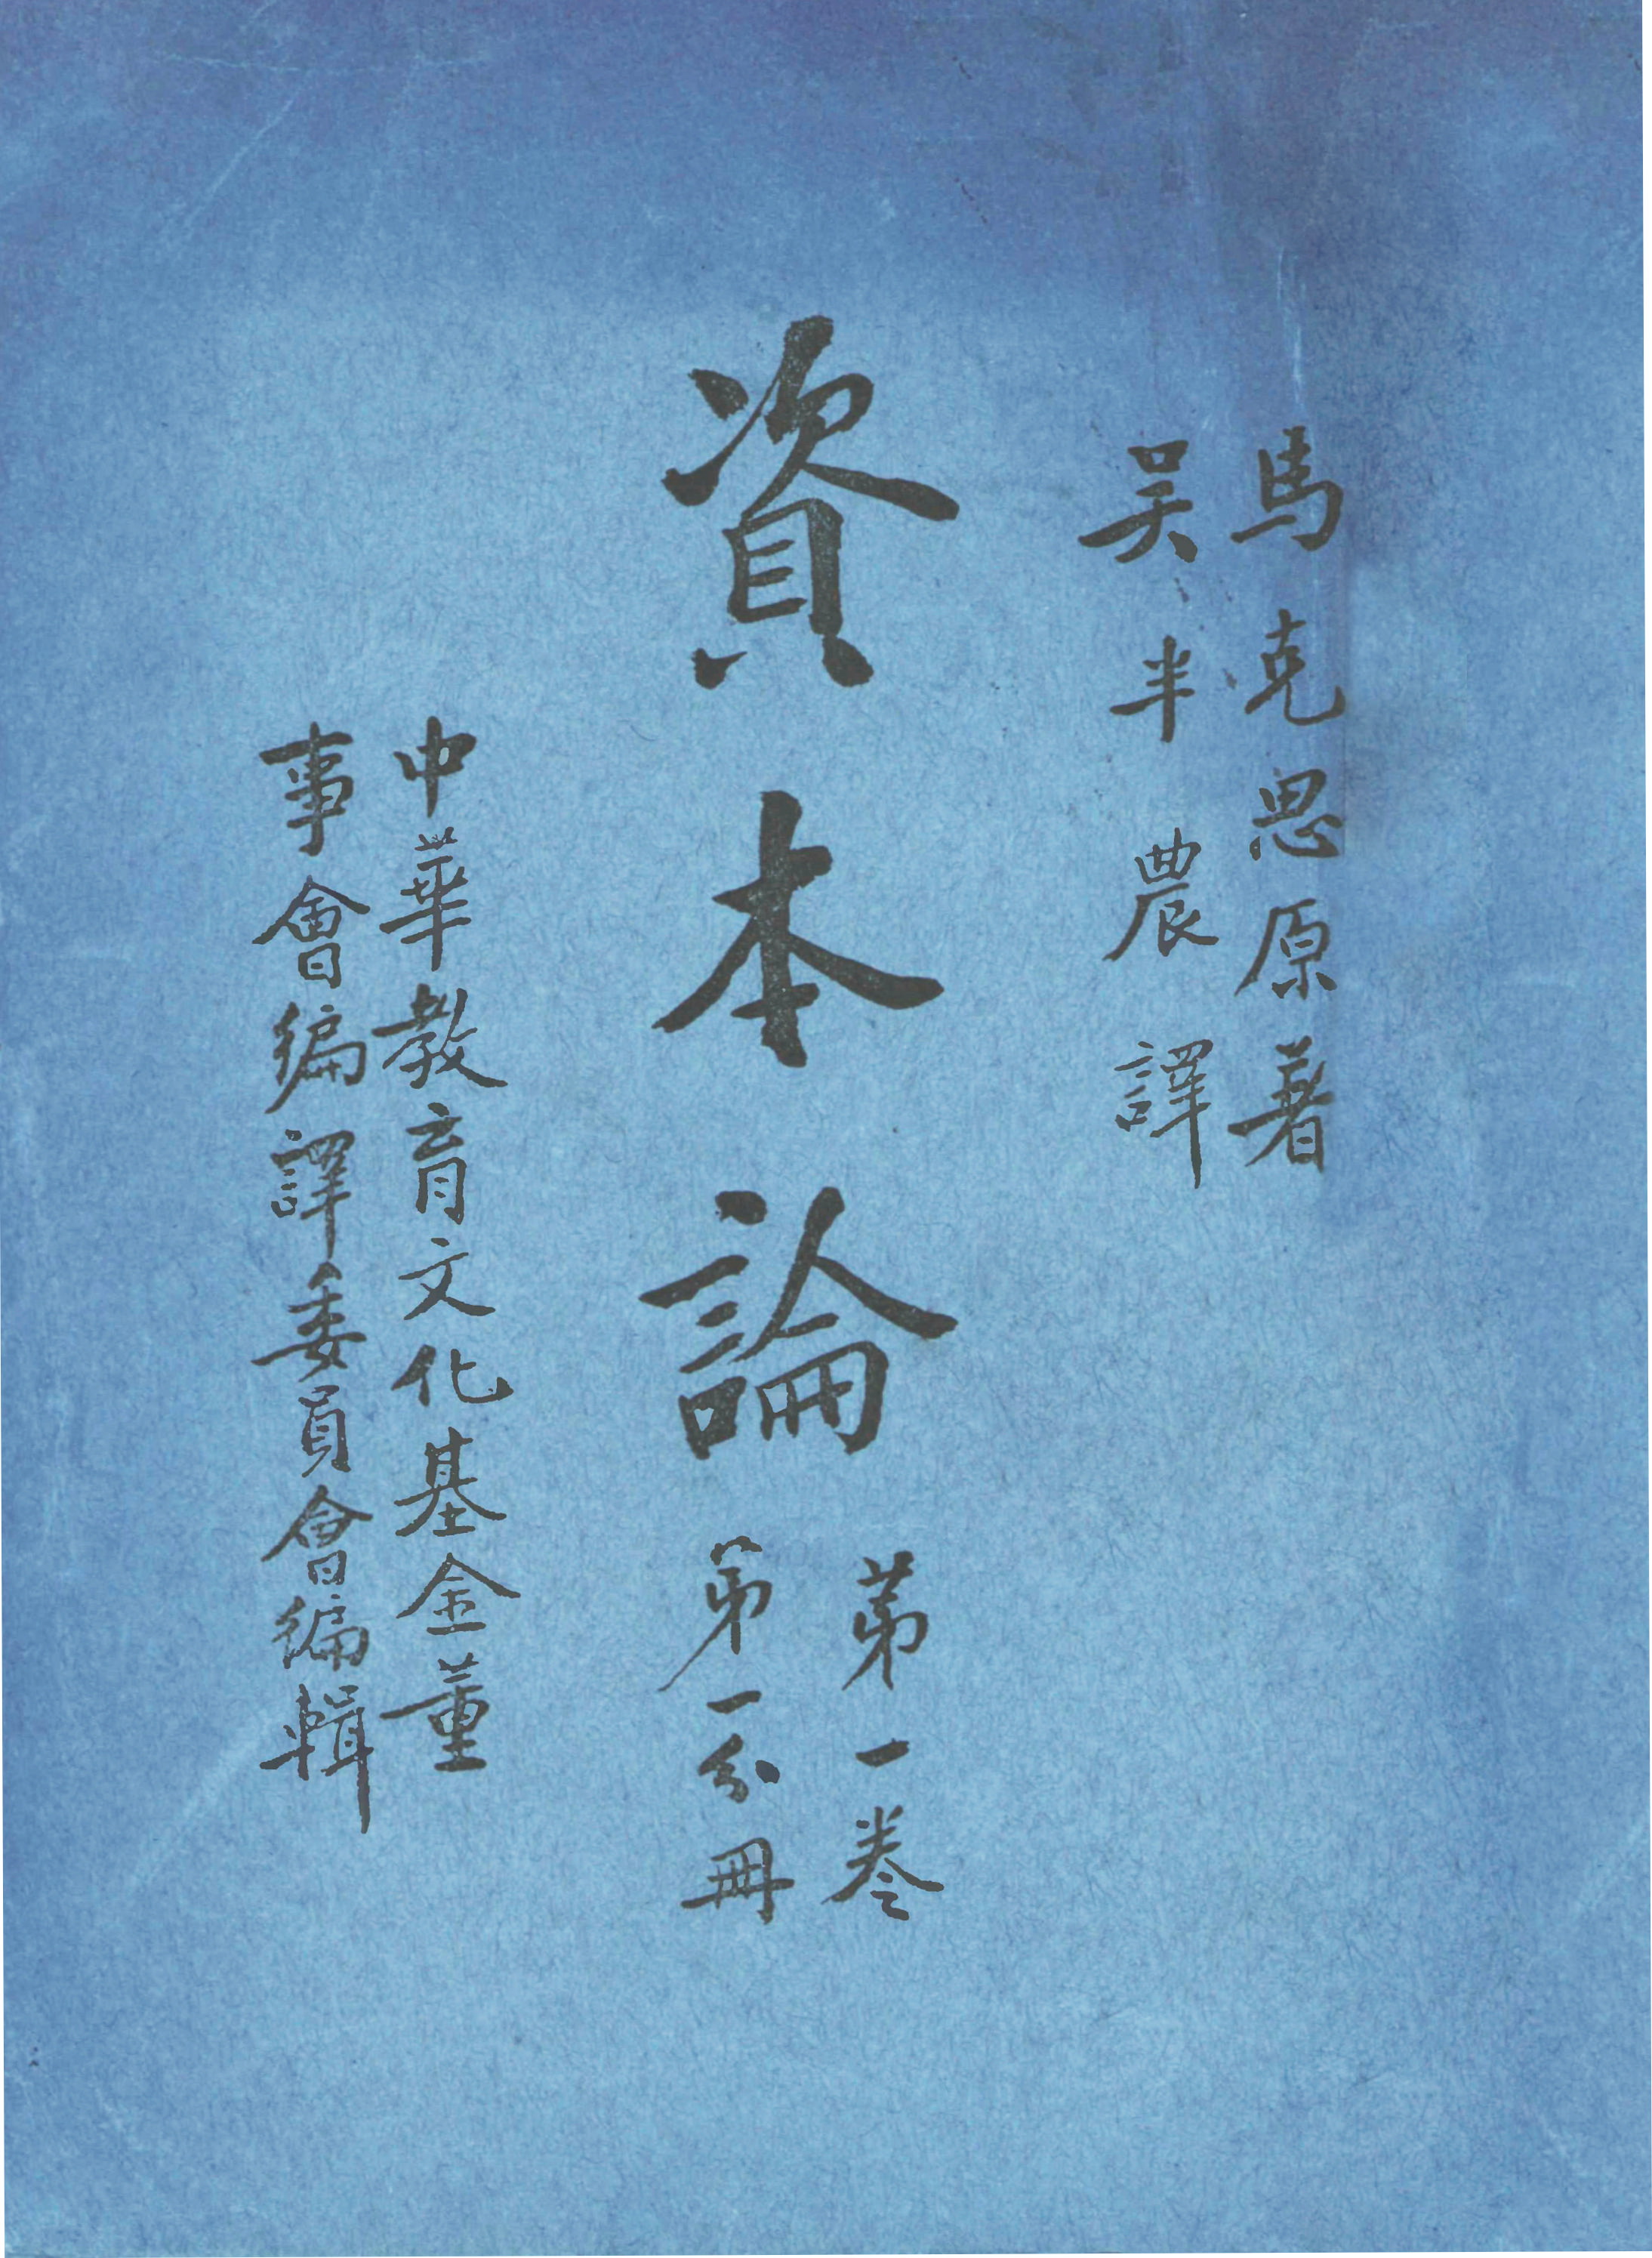 馬克思原著
吴半農譯
資本論
第一卷
第一分冊
中華教育文化基金董
事會編譯委員會編輯